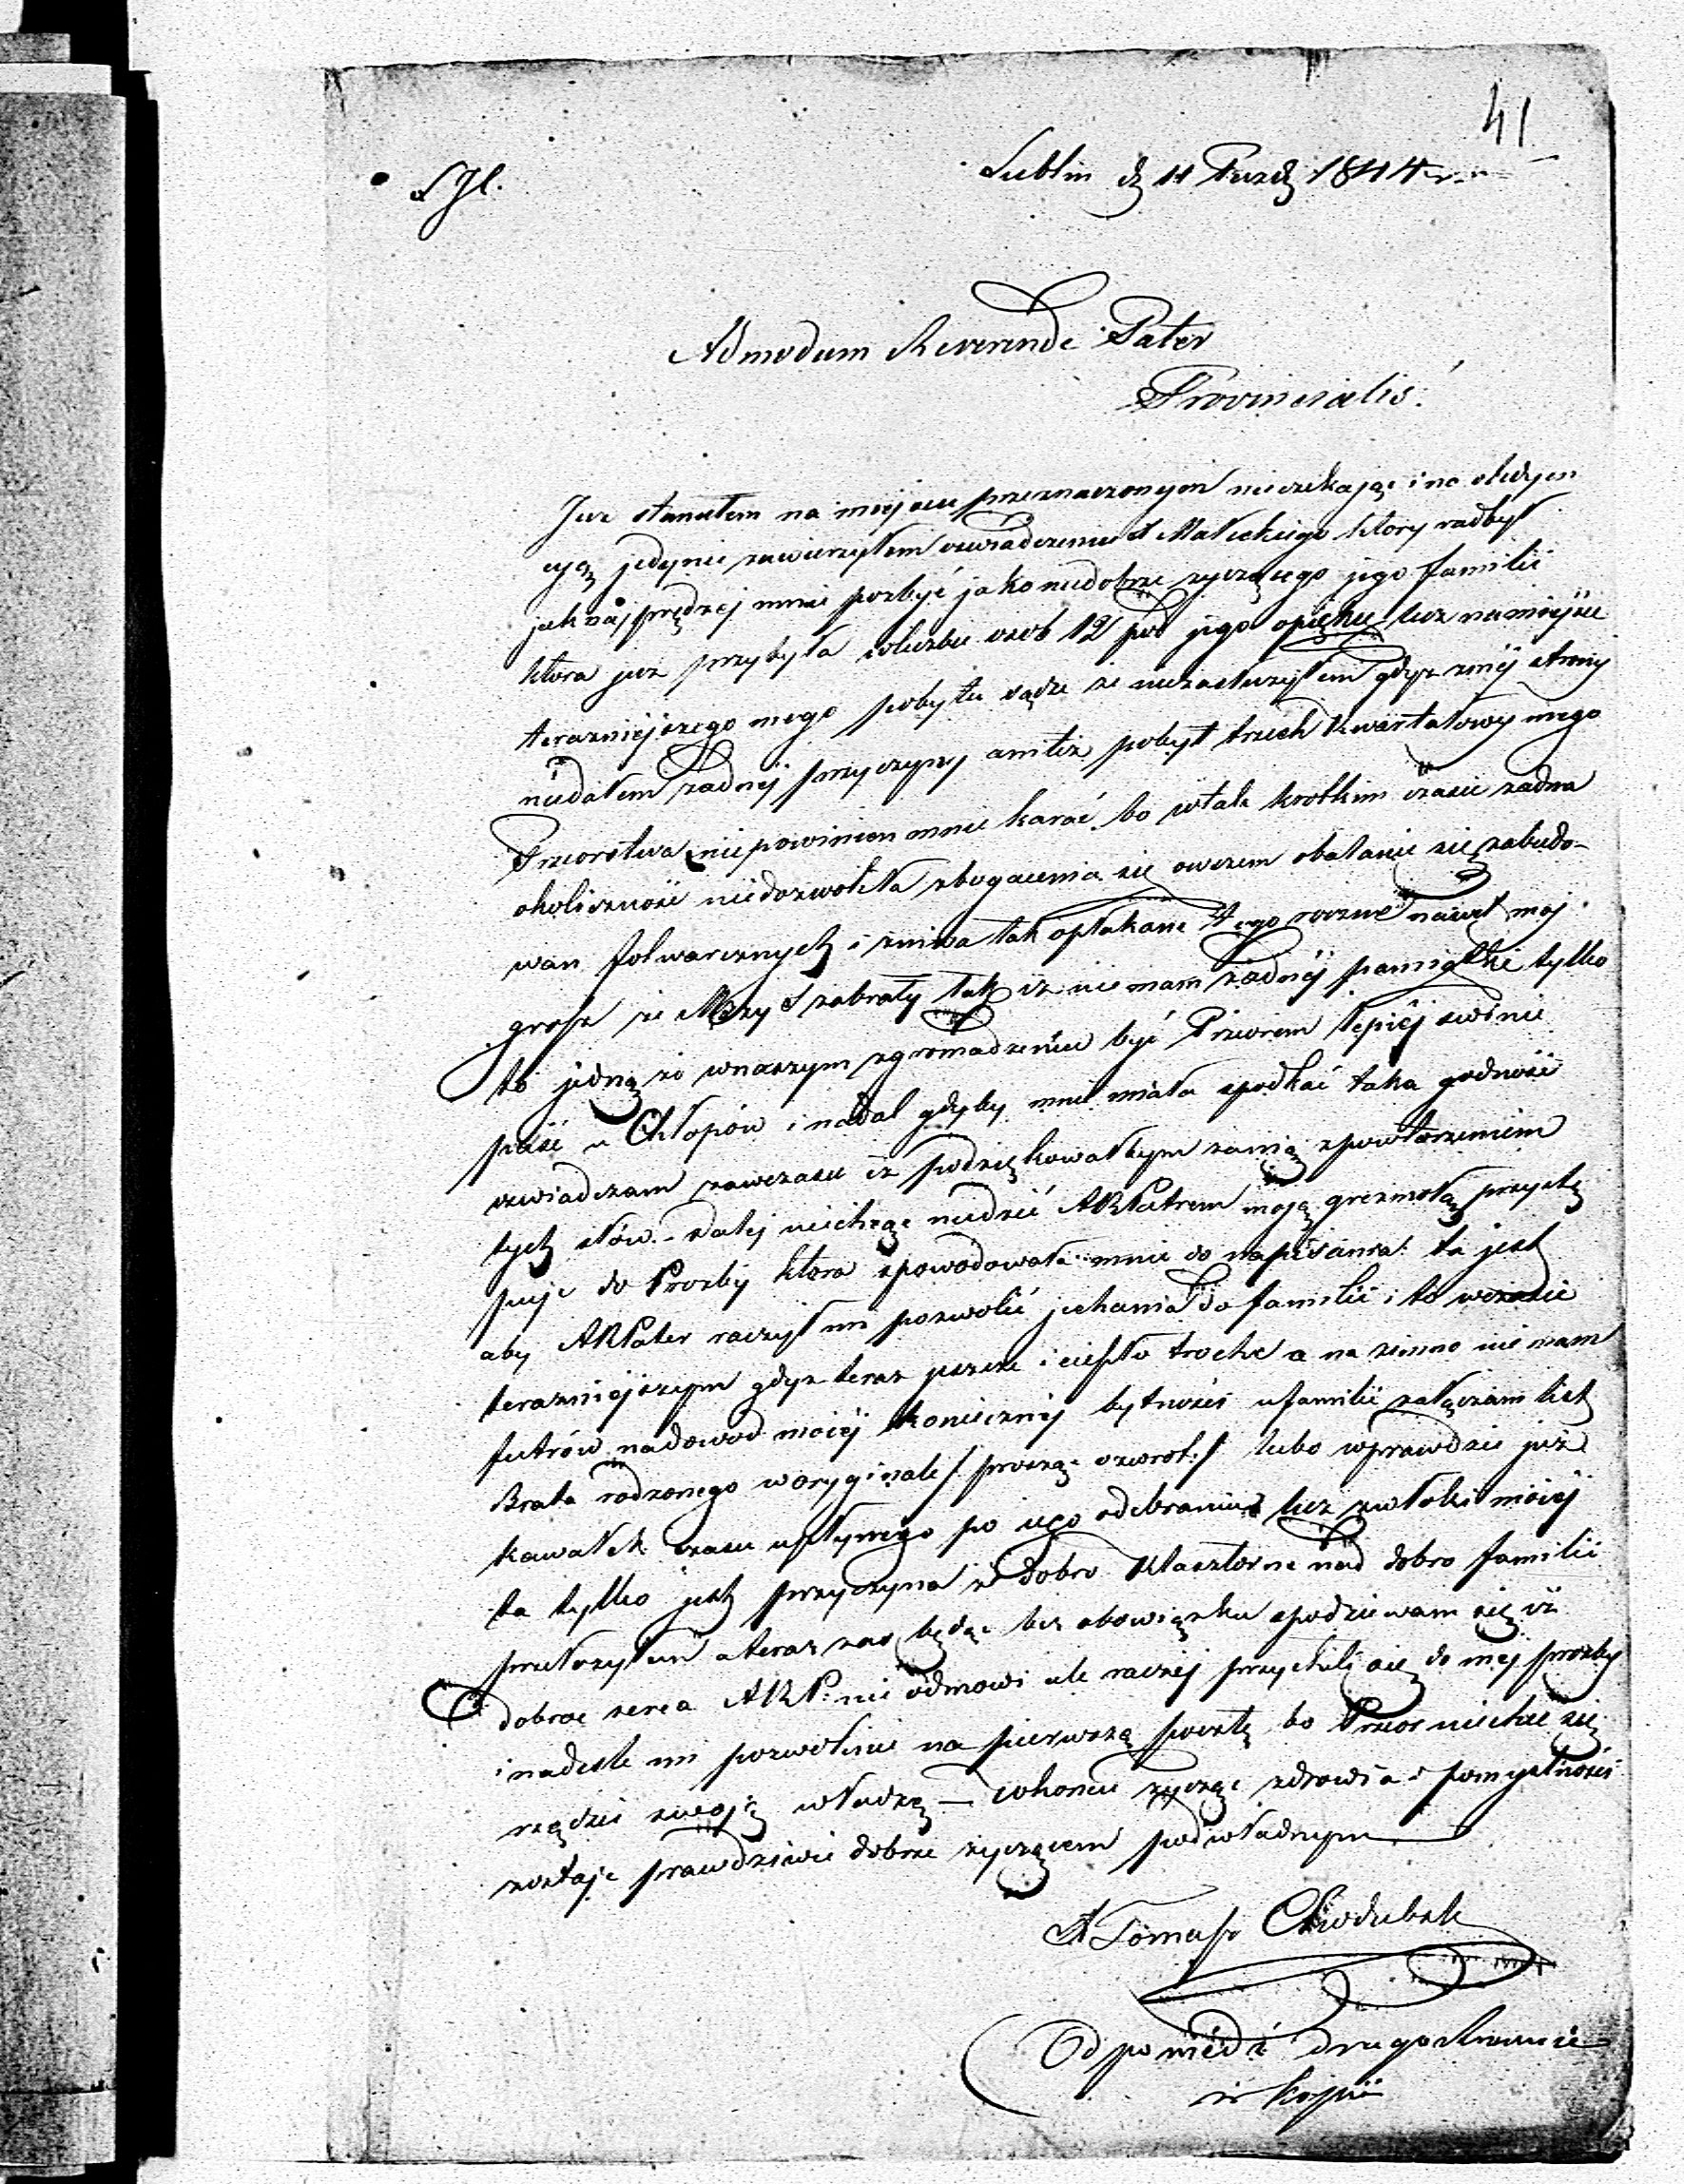 41
Lublin d 11 Paźdz 1844 r.
Admodum Reverende Pater
Provincialis!
Juz stanołem na miejscu przeznaczonym nieczekając i na obedyen
cyą jedynie zawierzyłem oswiadczeniu Małeckiego ktory radbył
jak náj prędzej mnie pozbyć jako niedobrze zyczącego jego familii
ktora juz przybyła wliczbie osob 12 pod jego opiekę lecz na miejsce
terazniejszego mego pobytu sądze ze niezasłuzyłem gdyz zmej strony
niedałem zadnej przyczyny amitiz pobyt trzech kwartałowy mego
Przeorstwa niepowinien mnie karać bo wtak krotkim czasie zadna
okoliczność niedozwoliła zbogacenia się owszem obalanie się zabudo-
wan folwarcznych i zniwa tak opłakane tego roczne nawet moj
grosz ze Mszy S zabrały tak iz nie mam zadnéj pamiątki tylko
tę jedną ze wnaszym zgromadzeniu być Przeorem lepiej swinie
paść u Chłopów i nadal gdyby mnie miała spodkać taka godność
oswiadczam zawczasu iz podziękowałbym zanią zpowtorzeniem
tych słów. - Dalej niechcąc nudzić ARPatrem moją gryzmołą przystę
puje do Prozby ktora spowodowała mnie do napisania ta jest
aby ARPater raczył mi pozwolić jechania do familii i to wczasie
terazniejszym gdyz teraz jeszcze i ciepło troche a na zimno nie mam
futrów nadowod mojéj koniecznej bytności ufamilii załączam list
Brata rodzonego woryginale /: proszę ozwrot :/ lubo wprawdzie już
kawałek czasu upłynęło po jego odebraniu lecz zwłoki mojéj
ta tylko jest przyczyna ze dobro Klasztorne nad dobro familii
przełozyłem a teraz zas będąc bez obowiązku spodziewam się iż
dobroc serca ARP: nie odmowi ale raczej przychyli się do mej prozby
i nadeśle mi pozwolenie na pierwszą pocztę bo Przeor niechce się
rządzić swoją władzą — wkoncu zycząc zdrowia i pomyslności
zostaje prawdziwie dobrze zyczącem podwładnym
X Tomasz Chodubsk
Odpowiédź drugostronnie
w kopii